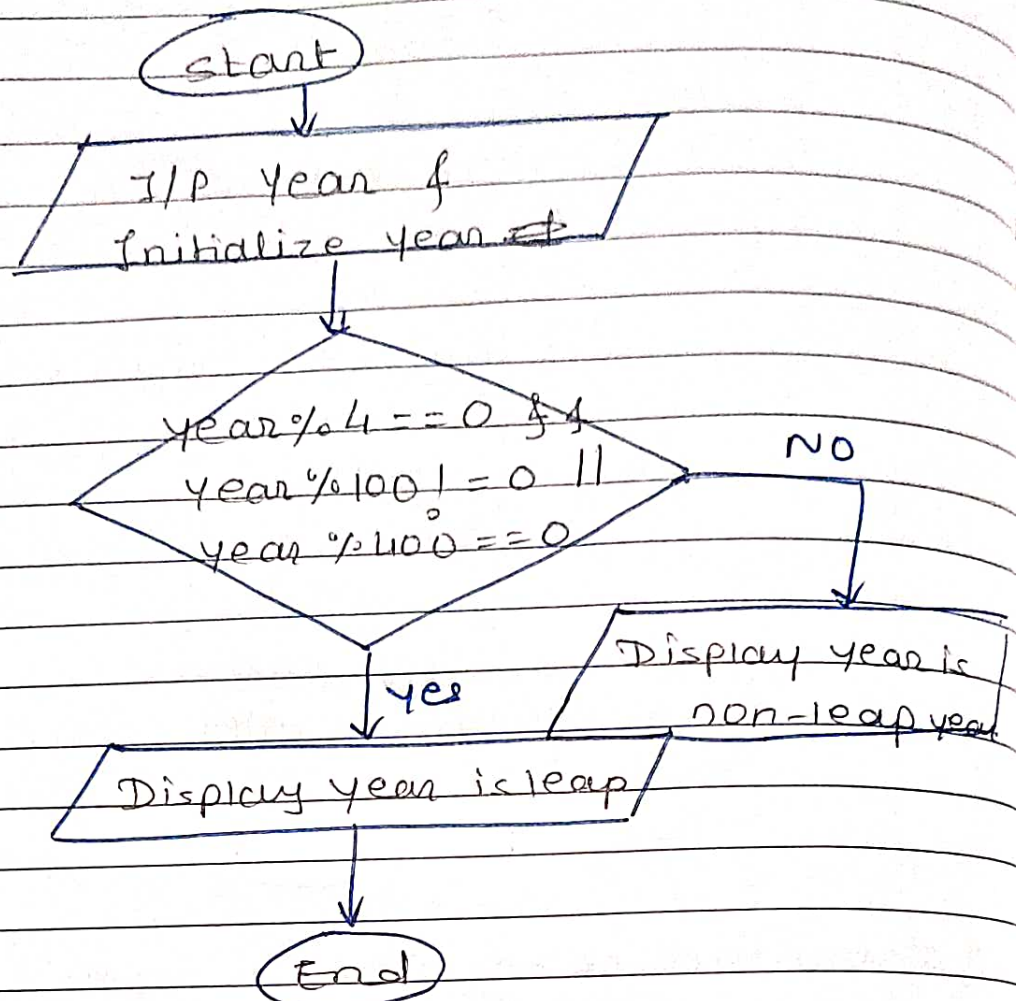 Start
I/P Year &
Initialize year
year%4==0 &&
year%100!=0 ||
year%400==0
NO
yes
Display year is
non-leap year
Display year is leap
End